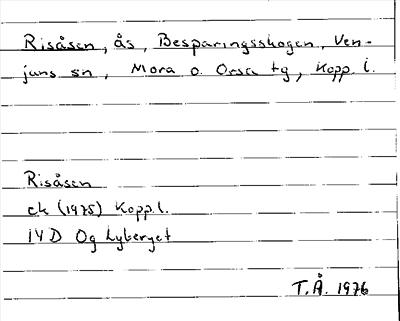 Risåsen, ås, Besparingsskogen, Ven-
jans sn, Mora o. Orsa tg, Kopp. l.
Risåsen
ek (1975) Kopp.l.
14D Og Lyberget
T.Å. 1976